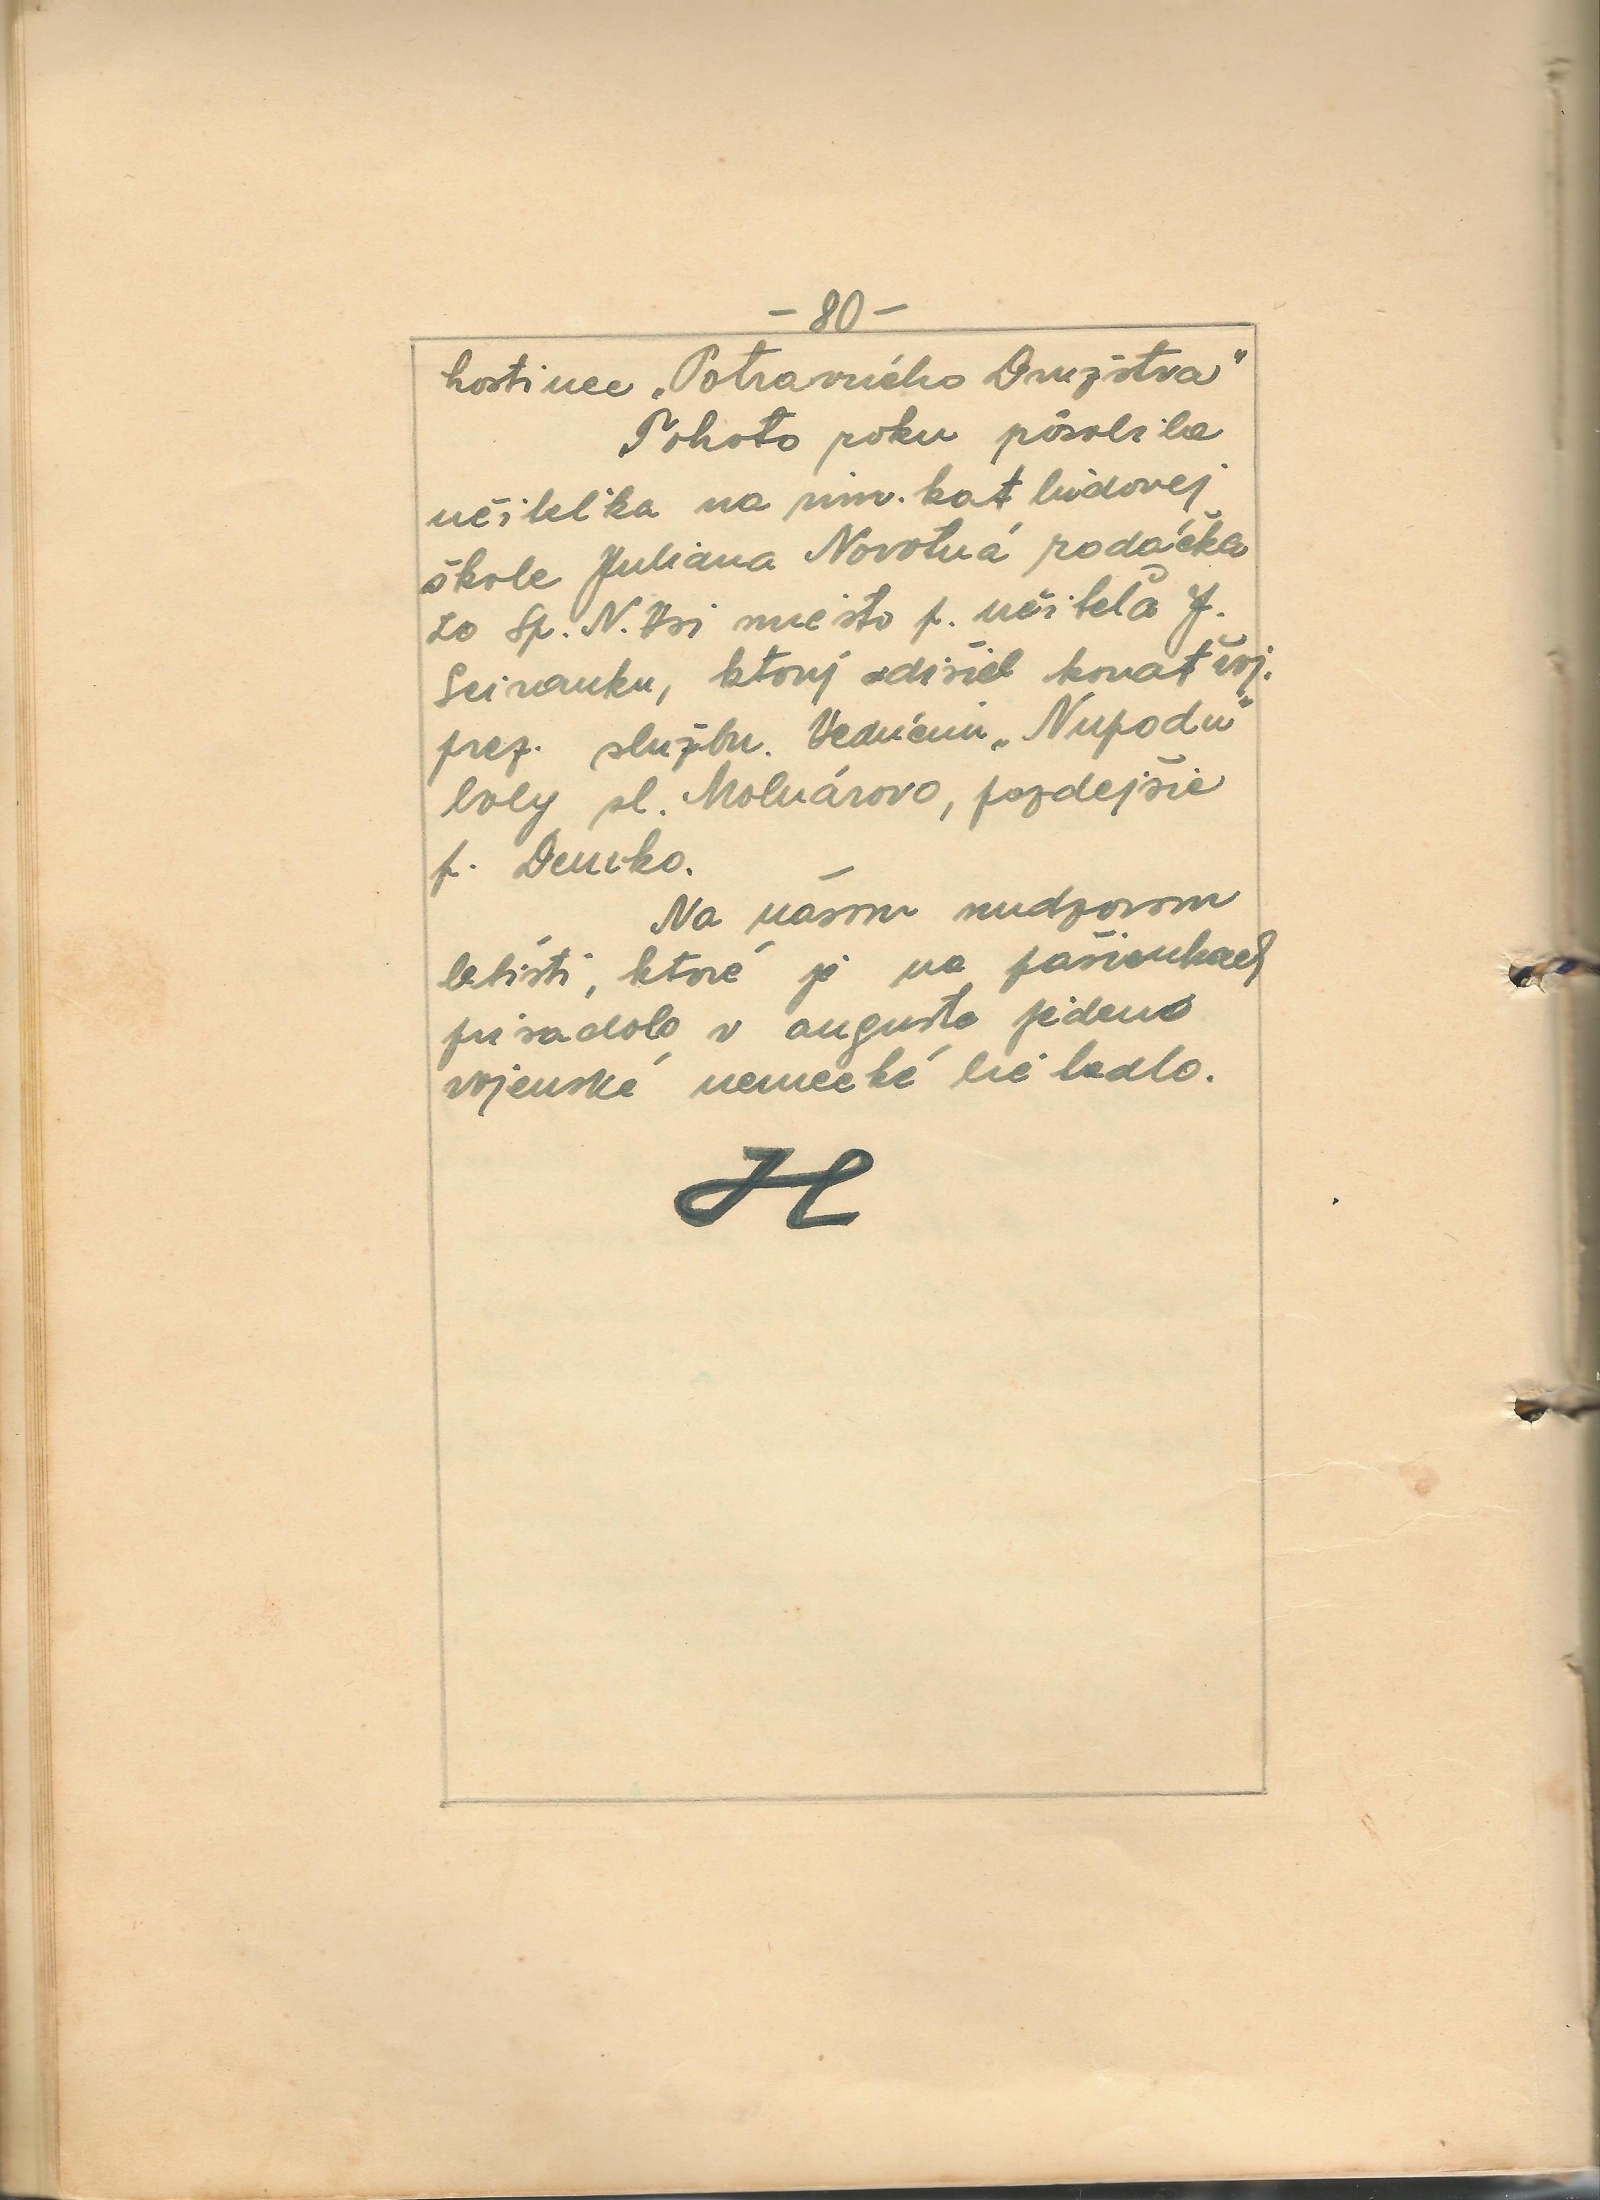 - 80 -
hostinec „Potravného Družstva"
Tohoto roku pôsobila
učiteľka na rim. kat ľudovej
škole Juliana Novotná rodáčka
zo Sp. N. Vsi miesto p. učiteľa J.
ktorý odišiel konať voj.
prez. službu. Vedúcimi „Nupodu"
boly sl. Molnárova, pozdejšie
p. Demko.
Na našom nudzovom
letišti, ktoré je na pašienkach
prisadolo v auguste jedeno
vojenské nemecké lietadlo.
H